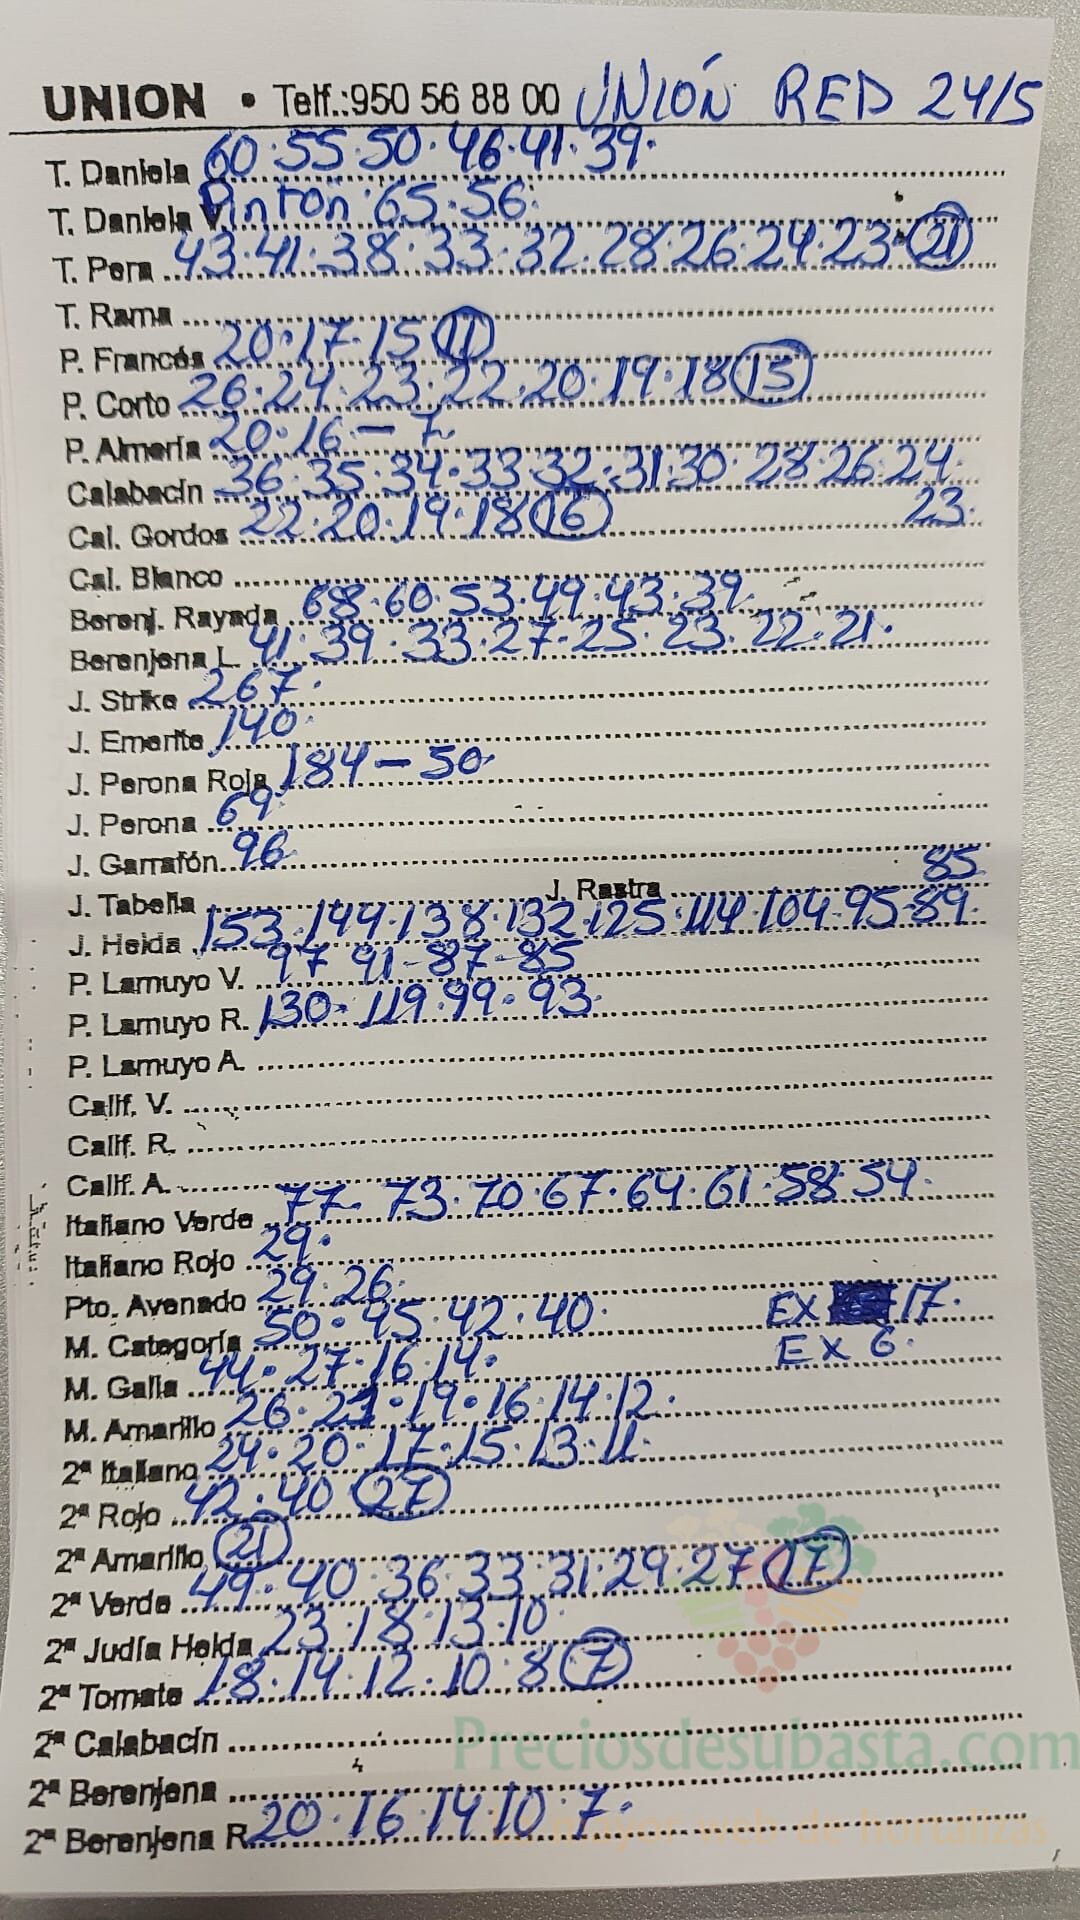 UNION • Telf.:950 56 88 00 UNIÓN RED 24/5
T. Daniela 60·55·50·46·41·39·
T. Daniela V. Pinton 65·56·
T. Pera 43·41·38·33·32·28·26·24·23·21
T. Rama
P. Francés 20·17·15 11
P. Corto 26·24·23·22·20·19·18 15
P. Almería 20·16-7
Calabacín 36·35·34·33·32·31·30·28·26·24·
23·
Cal. Gordos 22·20·19·18 16
Cal. Blanco
Berenj. Rayada 68·60·53·49·43·39·
Berenjena L. 41·39·33·27·25·23·22·21·
J. Strike 267·
J. Emerite 140·
J. Perona Roja 184-50·
J. Perona 69·
J. Garrafón 96·
J. Tabella J. Rastra 85
J. Helda 153·144·138·132·125·114·104·95·89·
P. Lamuyo V. 97 91-87-85
P. Lamuyo R. 130·119·99·93·
P. Lamuyo A.
Calif. V.
Calif. R.
Calif. A.
Italiano Verde 77·73·70·67·64·61·58·54·
Italiano Rojo 29·
Pto. Avenado 29·26·
M. Categoría 50·45·42·40· EX 17·
M. Galia 44·27·16·14· EX 6·
M. Amarillo 26·21·19·16·14·12·
2ª Italiano 24·20·17·15·13·11·
2ª Rojo 42·40 27
2ª Amarillo 21
2ª Verde 49·40·36·33·31·29·27 17
2ª Judía Helda 23·18·13·10
2ª Tomate 18·14·12·10·8 7
2ª Calabacín
Preciosdesubasta.com
2ª Berenjena
2ª Berenjena R. 20·16·14·10·7·
mayor web de hortalizas